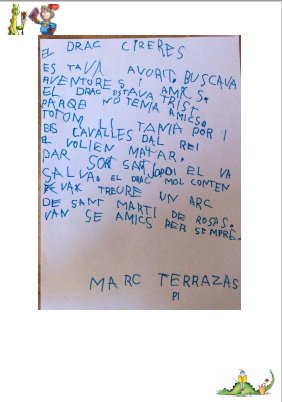 EL DRAC CIRERES
ES TAVA AVORIT. BUSCAVA
AVENTURES I AMICS.
EL DRAC ESTAVA TRIST
PARQE NO TENIA AMICS.
TOTOM LI TANIA POR I
ELS CAVALLES DAL REI
EL VOLIEN MATAR.
PAR SORT SANT JORDI EL VA
SALVA. EL DRAC MOL CONTEN
VAX TREURE UN ARC
DE SANT MARTI DE ROSAS.
VAN SE AMICS PER SEMPRE.
MARC TERRAZAS
P1